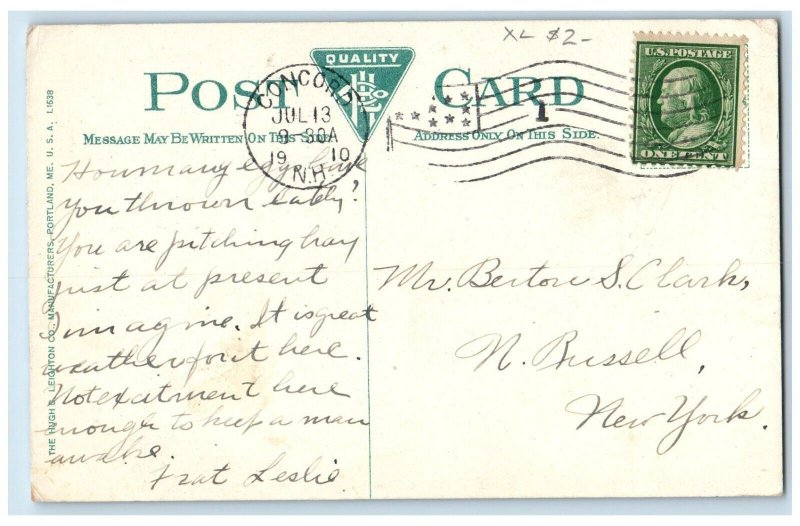 XL $2-
POST CARD
QUALITY
MESSAGE MAY BE WRITTEN ON THIS SIDE.
ADDRESS ONLY ON THIS SIDE.
CONCORD
JUL 13
9-30A
1910
N.H.
1
U.S. POSTAGE
ONE CENT
THE HUGH C. LEIGHTON CO., MANUFACTURERS, PORTLAND, ME. U.S.A. L1638
How many eggs have
you thrown lately?
You are pitching hay
just at present
I imagine. It is great
weather for it here.
Not exatment here
enough to keep a man
awake.
Frat Leslie
Mr. Berton S. Clark,
N. Russell,
New York.